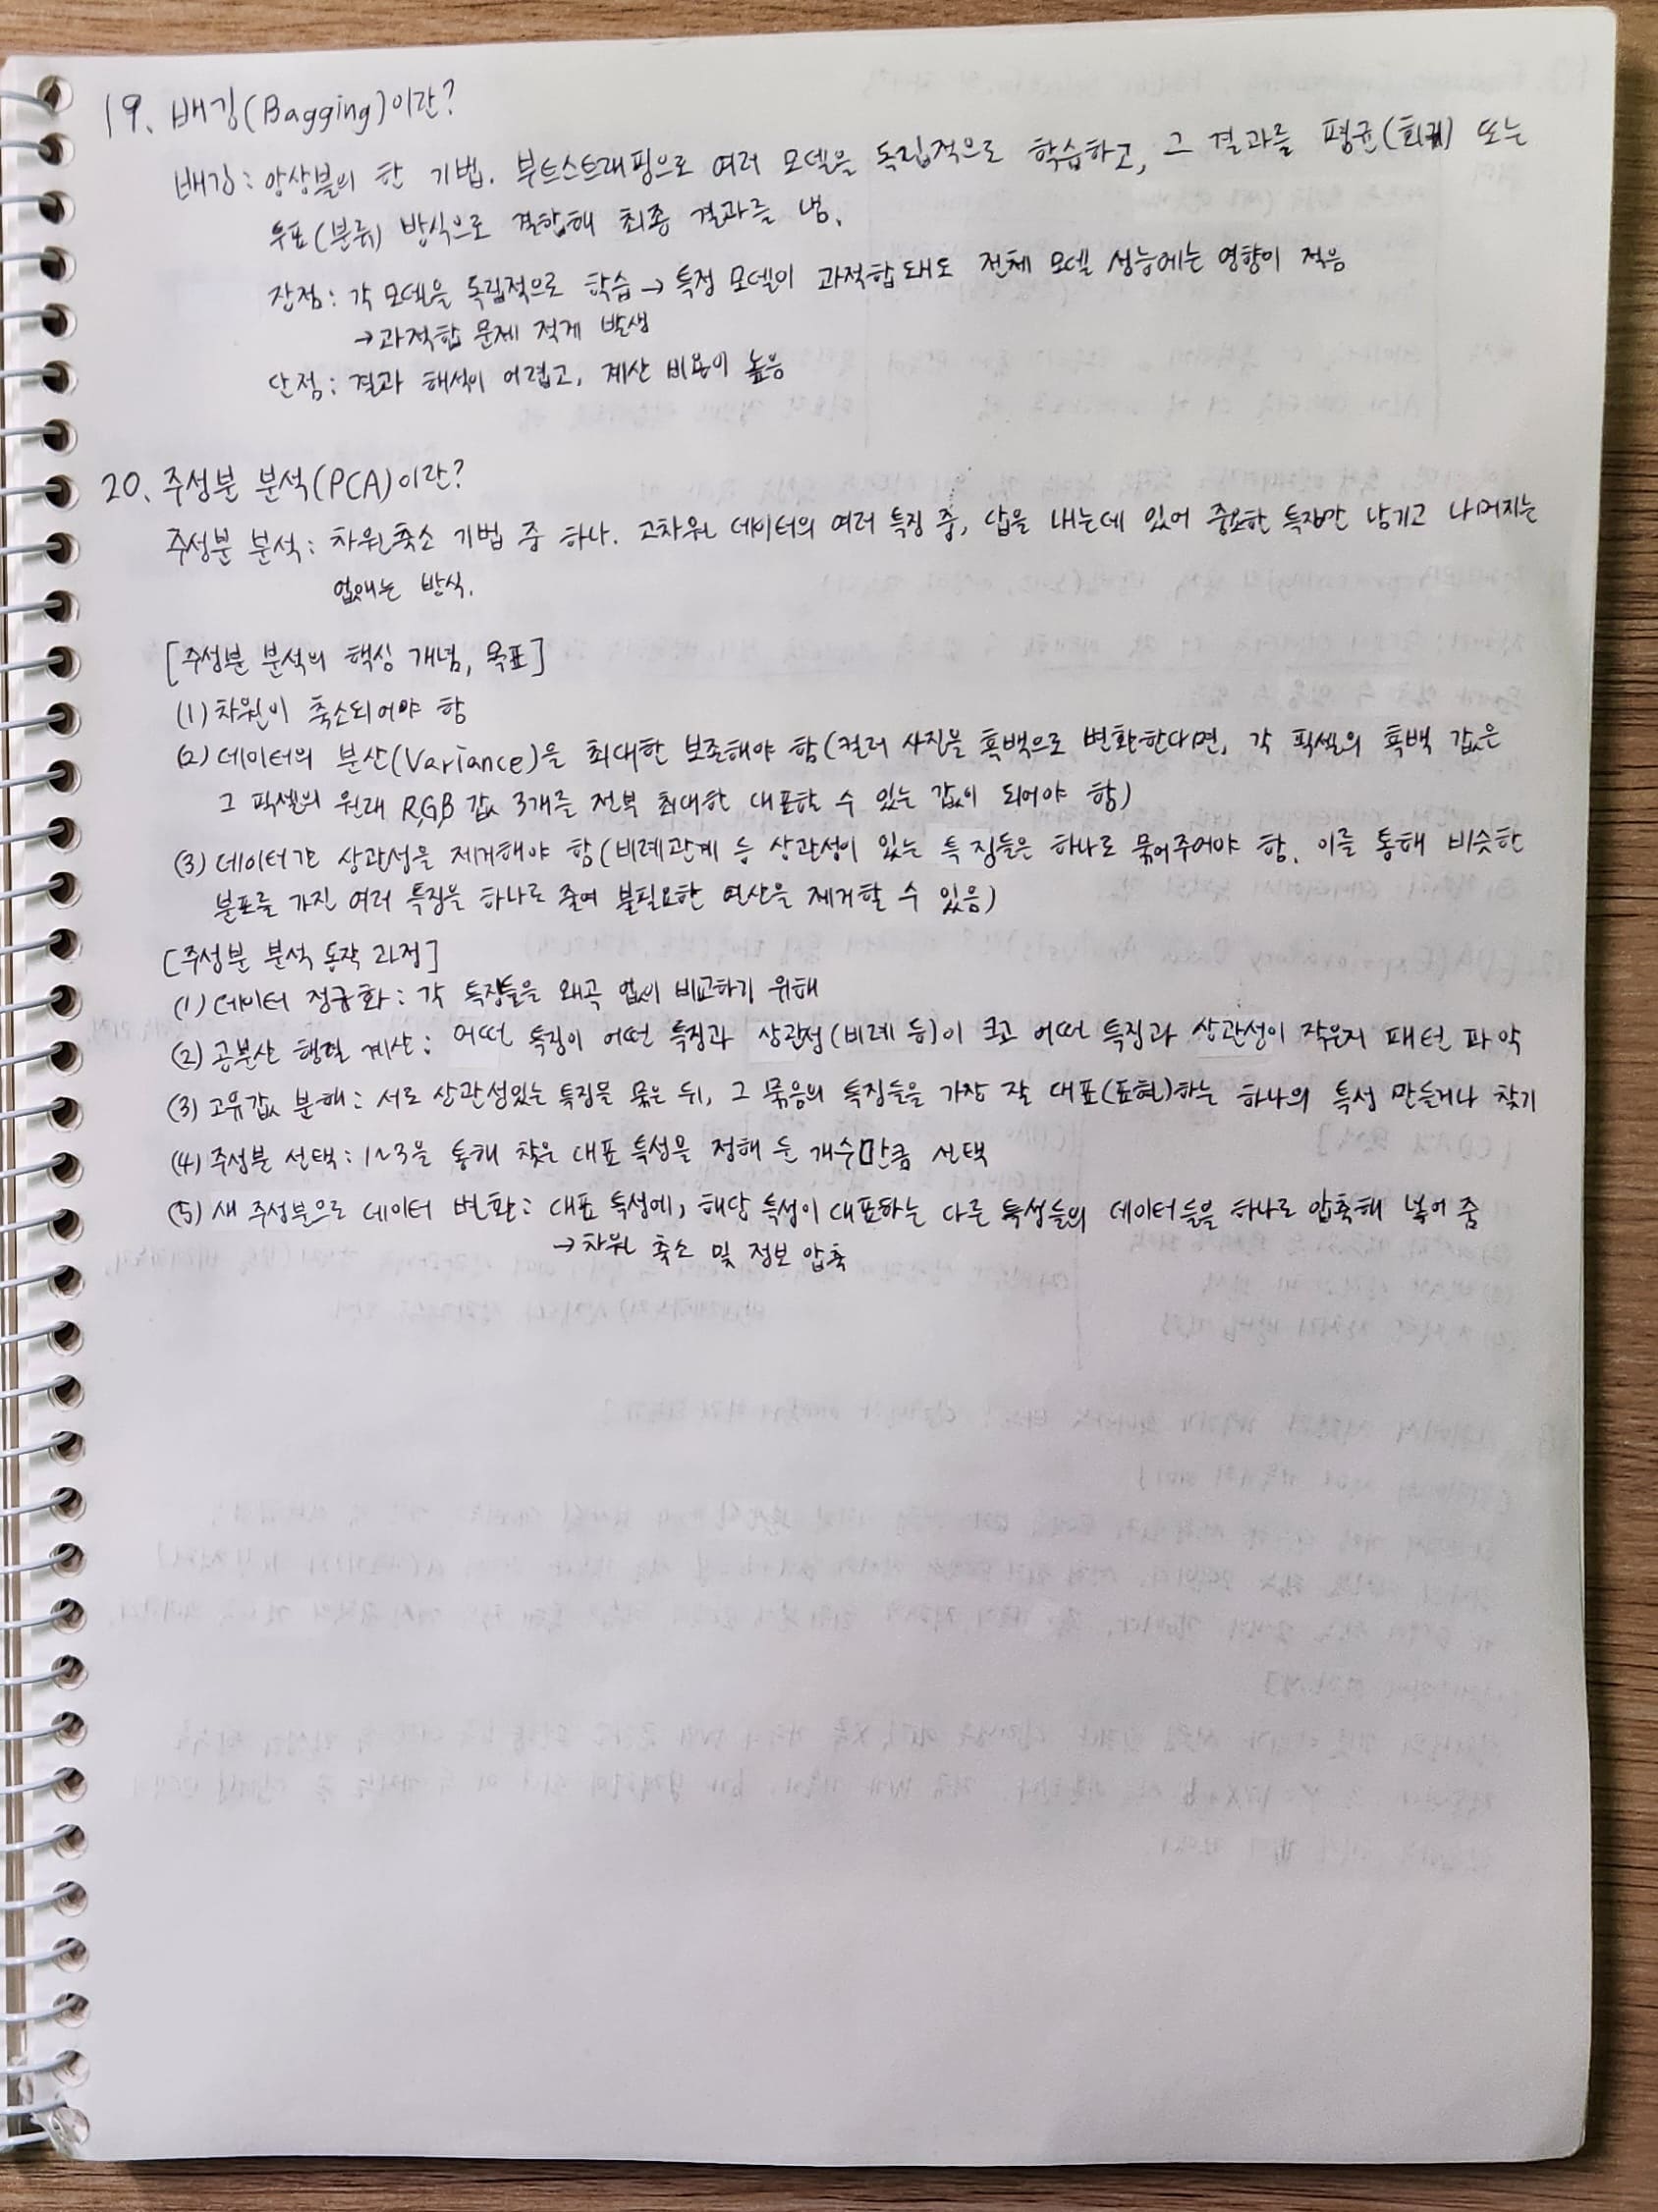 19. 배깅(Bagging)이란?
배깅: 앙상블의 한 기법. 부트스트래핑으로 여러 모델을 독립적으로 학습하고, 그 결과를 평균(회귀) 또는
투표(분류) 방식으로 결합해 최종 결과를 냄.
장점: 각 모델을 독립적으로 학습 → 특정 모델이 과적합돼도 전체 모델 성능에는 영향이 적음
→ 과적합 문제 적게 발생
단점: 결과 해석이 어렵고, 계산 비용이 높음
20. 주성분 분석(PCA)이란?
주성분 분석: 차원축소 기법 중 하나. 고차원 데이터의 여러 특징 중, 답을 내는데 있어 중요한 특징만 남기고 나머지는
없애는 방식.
[주성분 분석의 핵심 개념, 목표]
(1) 차원이 축소되어야 함
(2) 데이터의 분산(Variance)을 최대한 보존해야 함(컬러 사진을 흑백으로 변환한다면, 각 픽셀의 흑백 값은
그 픽셀의 원래 R,G,B 값 3개를 전부 최대한 대표할 수 있는 값이 되어야 함)
(3) 데이터간 상관성을 제거해야 함(비례관계 등 상관성이 있는 특징들은 하나로 묶어주어야 함. 이를 통해 비슷한
분포를 가진 여러 특징을 하나로 줄여 불필요한 연산을 제거할 수 있음)
[주성분 분석 동작 과정]
(1) 데이터 정규화: 각 특징들을 왜곡 없이 비교하기 위해
(2) 공분산 행렬 계산: 어떤 특징이 어떤 특징과 상관성(비례 등)이 크고 어떤 특징과 상관성이 작은지 패턴 파악
(3) 고유값 분해: 서로 상관성있는 특징을 묶은 뒤, 그 묶음의 특징들을 가장 잘 대표(표현)하는 하나의 특성 만들거나 찾기
(4) 주성분 선택: 1~3을 통해 찾은 대표 특성을 정해 둔 개수만큼 선택
(5) 새 주성분으로 데이터 변환: 대표 특성에, 해당 특성이 대표하는 다른 특성들의 데이터들을 하나로 압축해 넣어 줌
→ 차원 축소 및 정보 압축